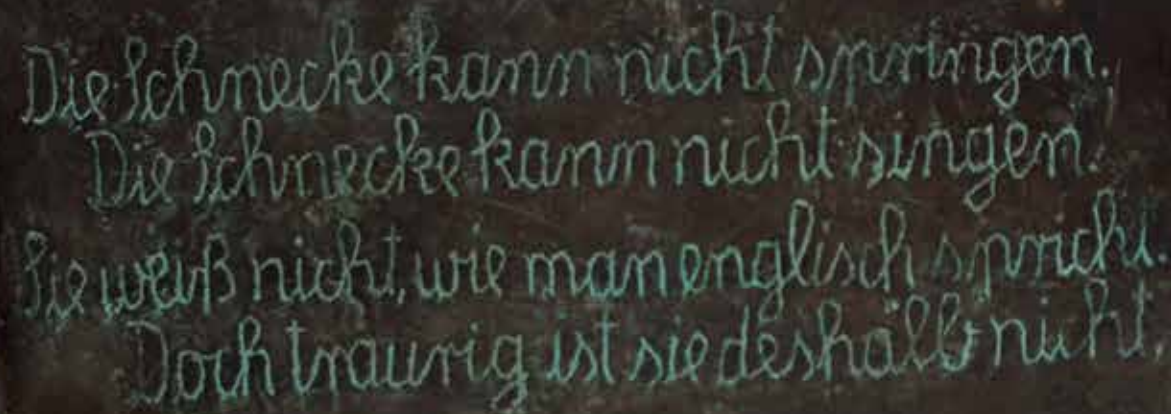 Die Schnecke kann nicht springen.
Die Schnecke kann nicht singen.
Sie weiß nicht, wie man englisch spricht.
Doch traurig ist sie deshalb nicht.